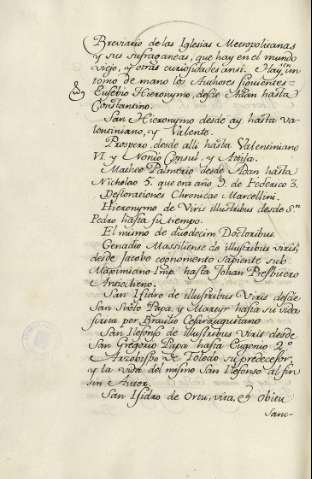 Breviario de las Iglesias Metropolitanas
y sus sufraganeas, que hay en el mundo
viejo, y otras curiosidades ansi. Hay un
tomo de mano los Authores siguientes
Eusebio Hieronymo, desde Adan hasta
Constantino.
San Hieronymo desde ay hasta Va-
lentiniano, y Valente.
Prospero, desde alli hasta Valentiniano
VI. y Nonio Consul. y Attila.
Matheo Palmerio desde Adan hasta
Nicholao 5. que era año 9. de Federico 3.
Deflorationes Chronicae Marcellini.
Hieronymo de Viris illustribus desde Sn.
Pedro hasta su tiempo.
El mismo de duodecim Doctoribus
Genadio Massiliense de illustribus viris,
desde Jacobo cognomento Sapiente sub
Maximiano Imp. hasta Johan Presbitero
Antiocheno.
San Isidro de illustribus Viris desde
San Sixto Papa, y Martyr hasta su vida
scrita por Braulio Cesaraugustano
San Ilefonso de illustribus Viris desde
San Gregorio Papa hasta Eugenio 2.º
Arzobispo de Toledo su predecesor,
y la vida del mismo San Ilefonso al fin
sin Autor.
San Isidro de Ortu, vita, et obitu
Sanc-